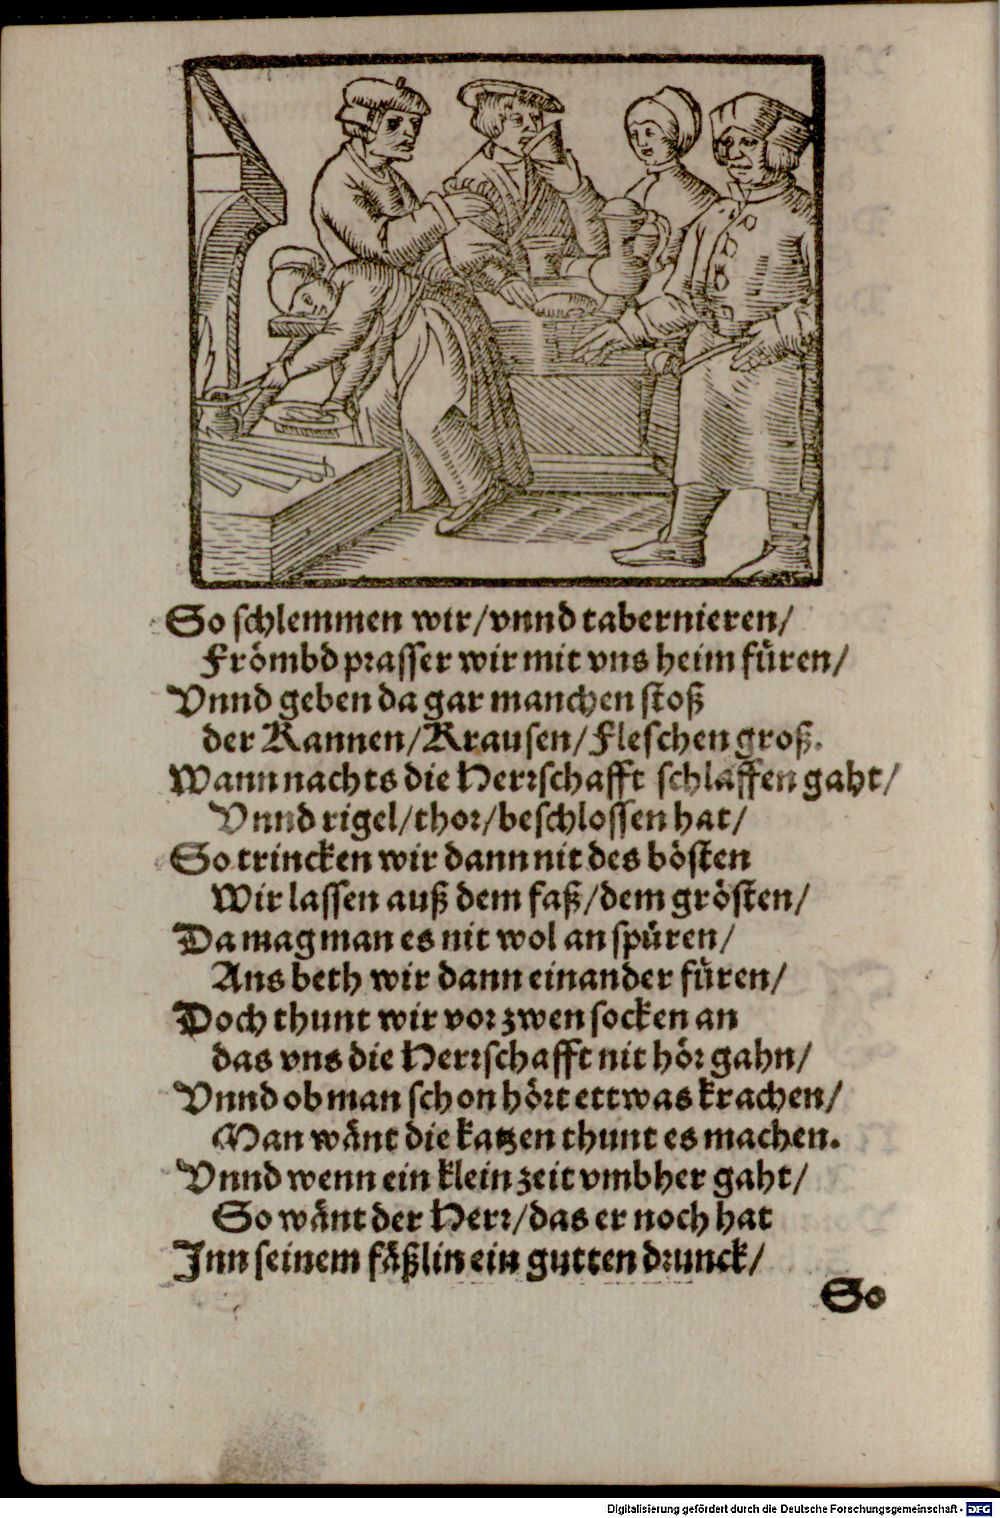 So schlemmen wir/vnnd tabernieren/
Frömbd prasser wir mit vns heim füren/
Vnnd geben da gar manchen stoß
der Kannen/Krausen/Fleschen groß.
Wann nachts die Herrschafft schlaffen gaht/
Vnnd rigel/thor/beschlossen hat/
So trincken wir dann nit des bösten
Wir lassen auß dem faß/dem grösten/
Da mag man es nit wol an spüren/
Ans beth wir dann einander füren/
Doch thunt wir vor zwen socken an
das vns die Herrschafft nit hör gahn/
Vnnd ob man schon hört ettwas krachen/
Man wänt die katzen thunt es machen.
Vnnd wenn ein klein zeit vmbher gaht/
So wänt der Herr/das er noch hat
Inn seinem fäßlin ein gutten drunck/
So
Digitalisierung gefördert durch die Deutsche Forschungsgemeinschaft - DFG